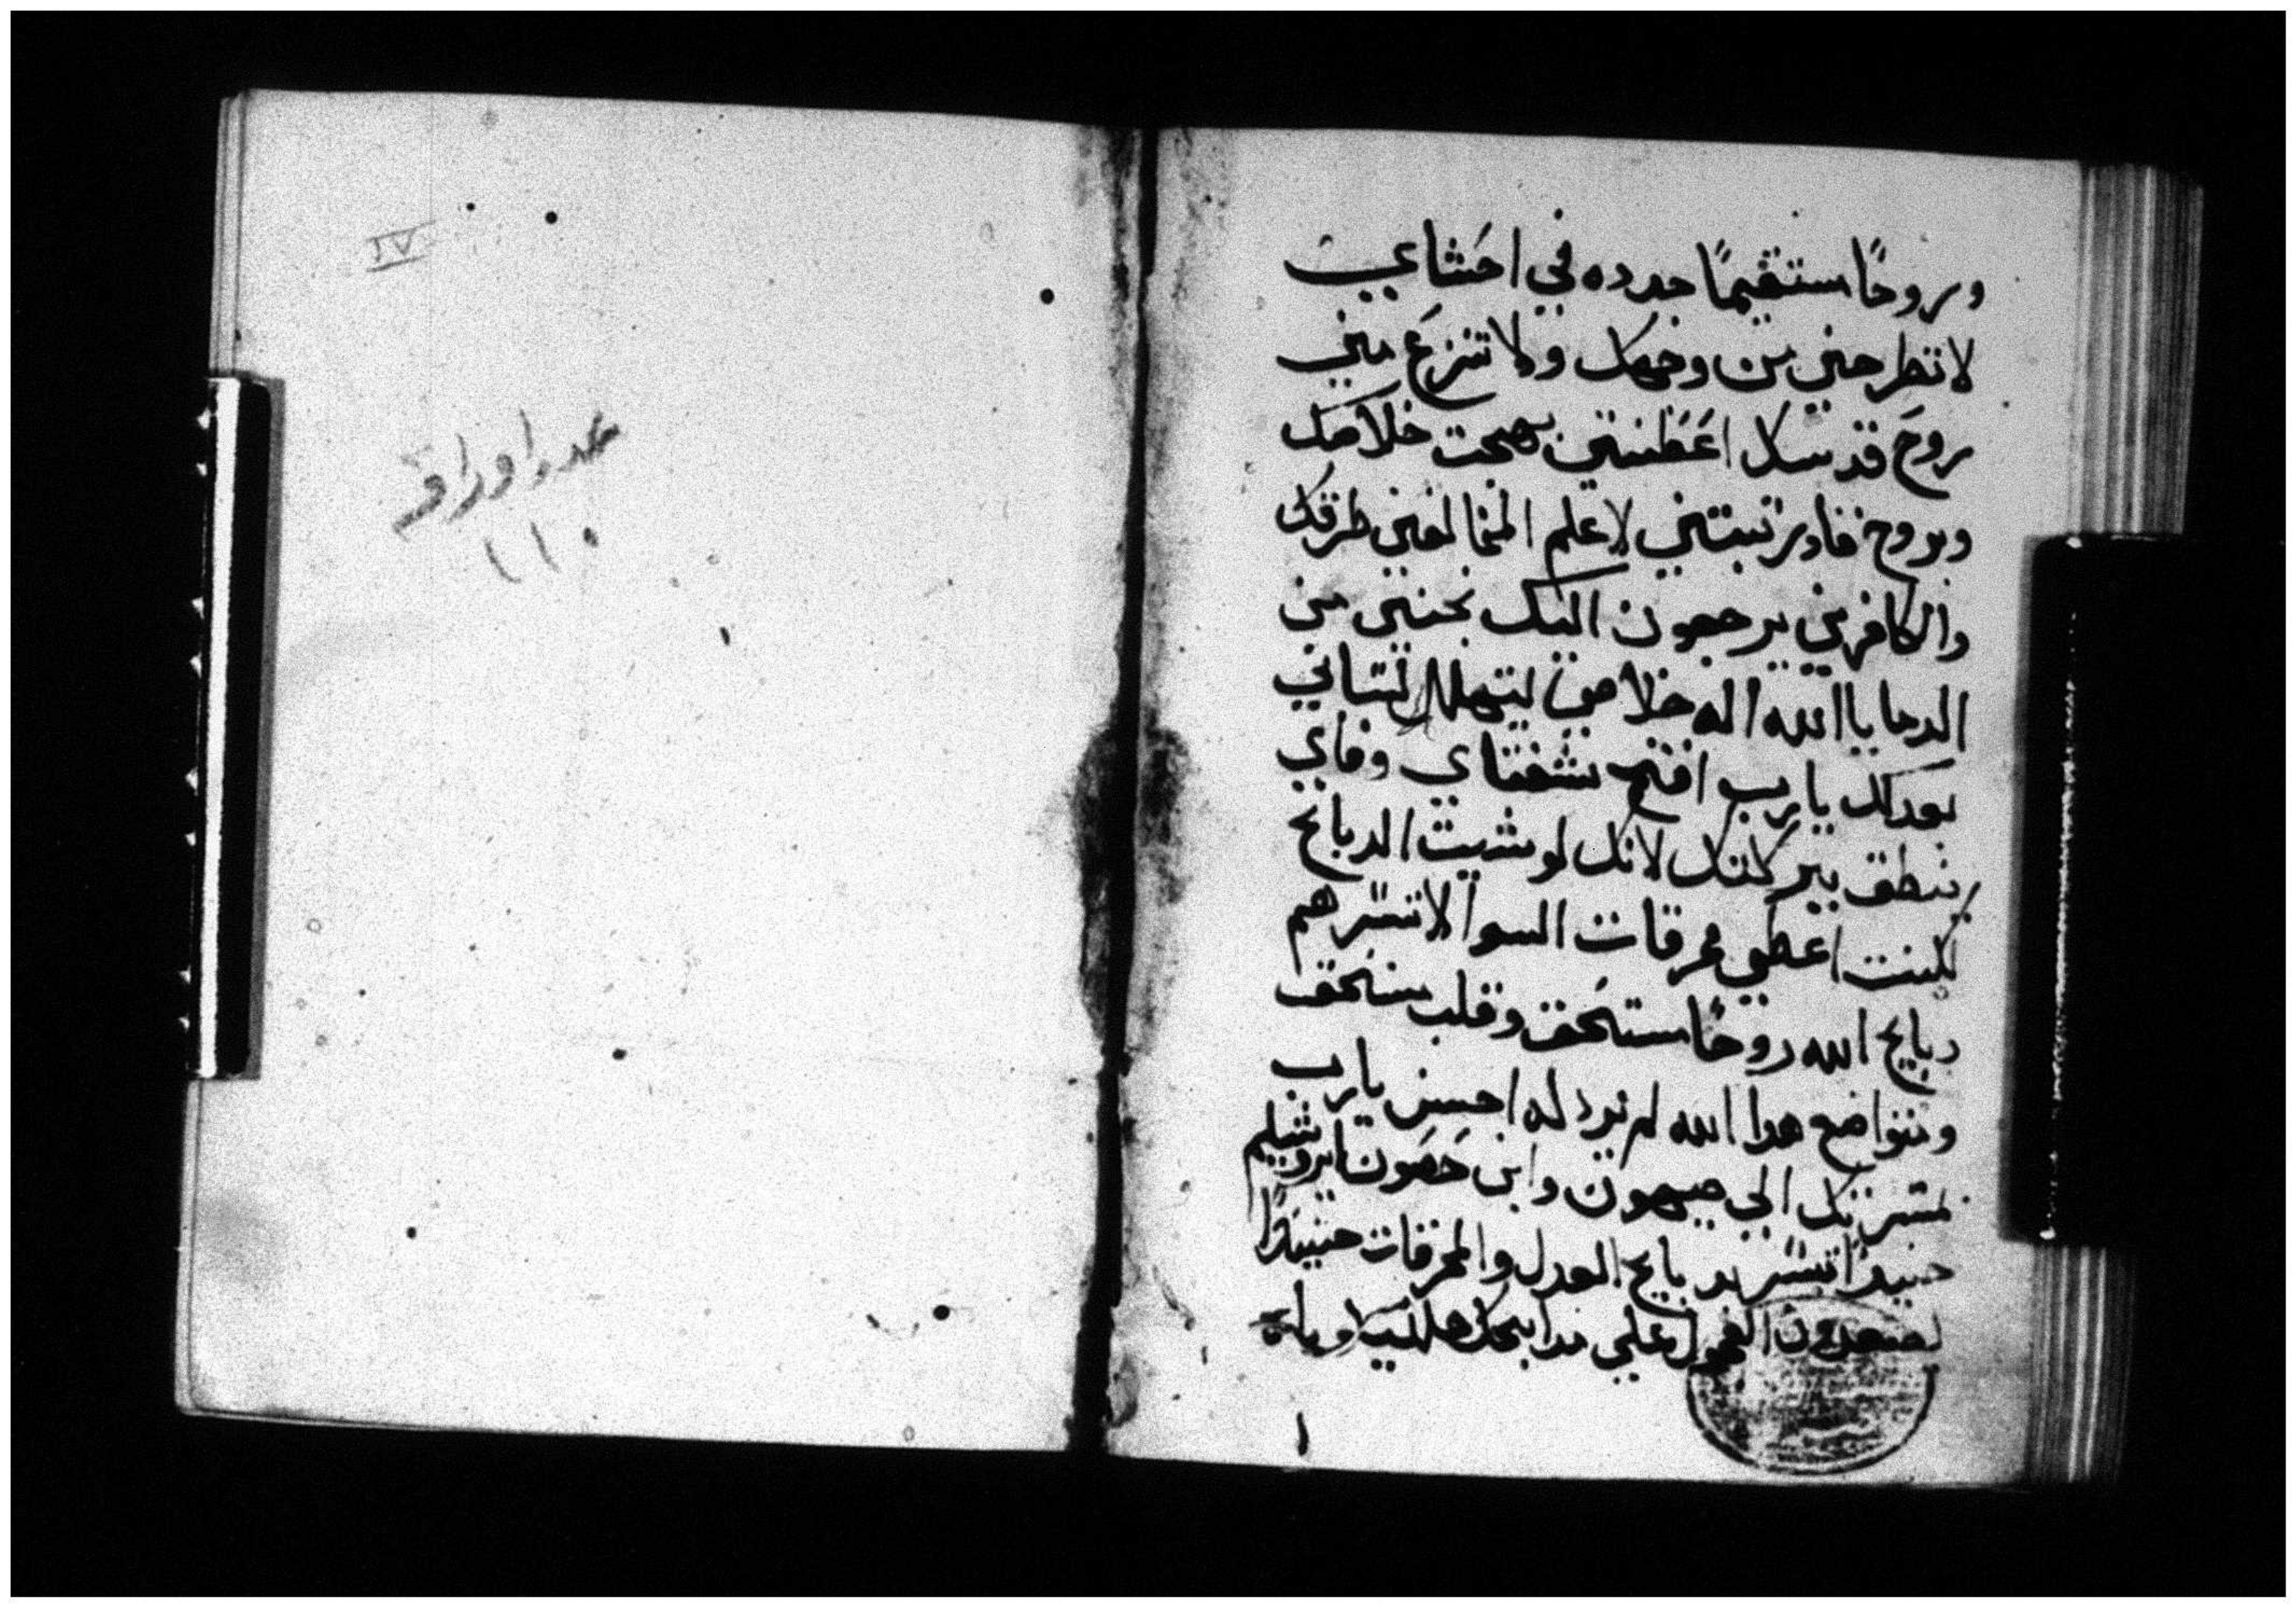 وروحًا مستقيمًا جدده في احَشاىي
لا تطرحني من وجهك ولا تنزعَ مني
روحَ قدسك اعَطيني بهجت خلاصك
وبروح قاوي تبتني لاعلم المخالفين طرقك
والكافرين يرجعون اليك نجني من
الدما يا الله اله خلاصي ليتهلل لساني
بعدلك يا رب افتح شفتاي وفاي
ينطق ببركتك لانك لو شيت الدبايح
لكنت اعطي محرقات السوا لا تسر هم
دبايح الله روحًا مستحَق وقلب مستحَق
ومتواضع هدا الله لم يرد له احسن يا رب
لمسرتك الي صيهون وابني حَصَون ايروشليم
حينيدًا تسر بدبايح العدل والمحرقات حينيدًا
يصعدون العجول علي مدابحك هلليلويا
١
عدد اوراقه
١١٠
IV